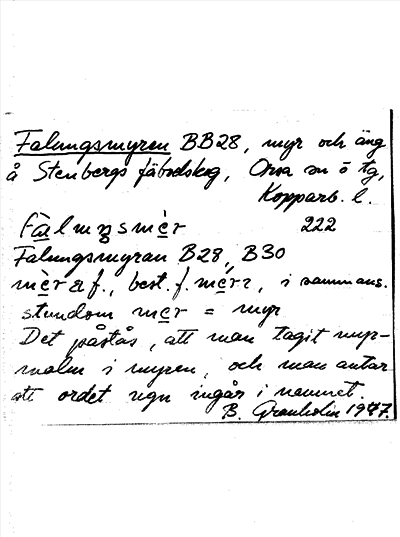 Falungsmyren BB28, myr och äng
å Stenbergs fäbodskog, Orsa sn ö tg,
Kopparb. l.
fàlmŋsmèr 222
Falungsmyran B28, B30
mèr f., best. f. mérɛ, i sammans.
stundom mer = myr
Det påstås, att man tagit myr-
malm i myren, och man antar
att ordet ugn ingår i namnet.
B. Granholm 1947.